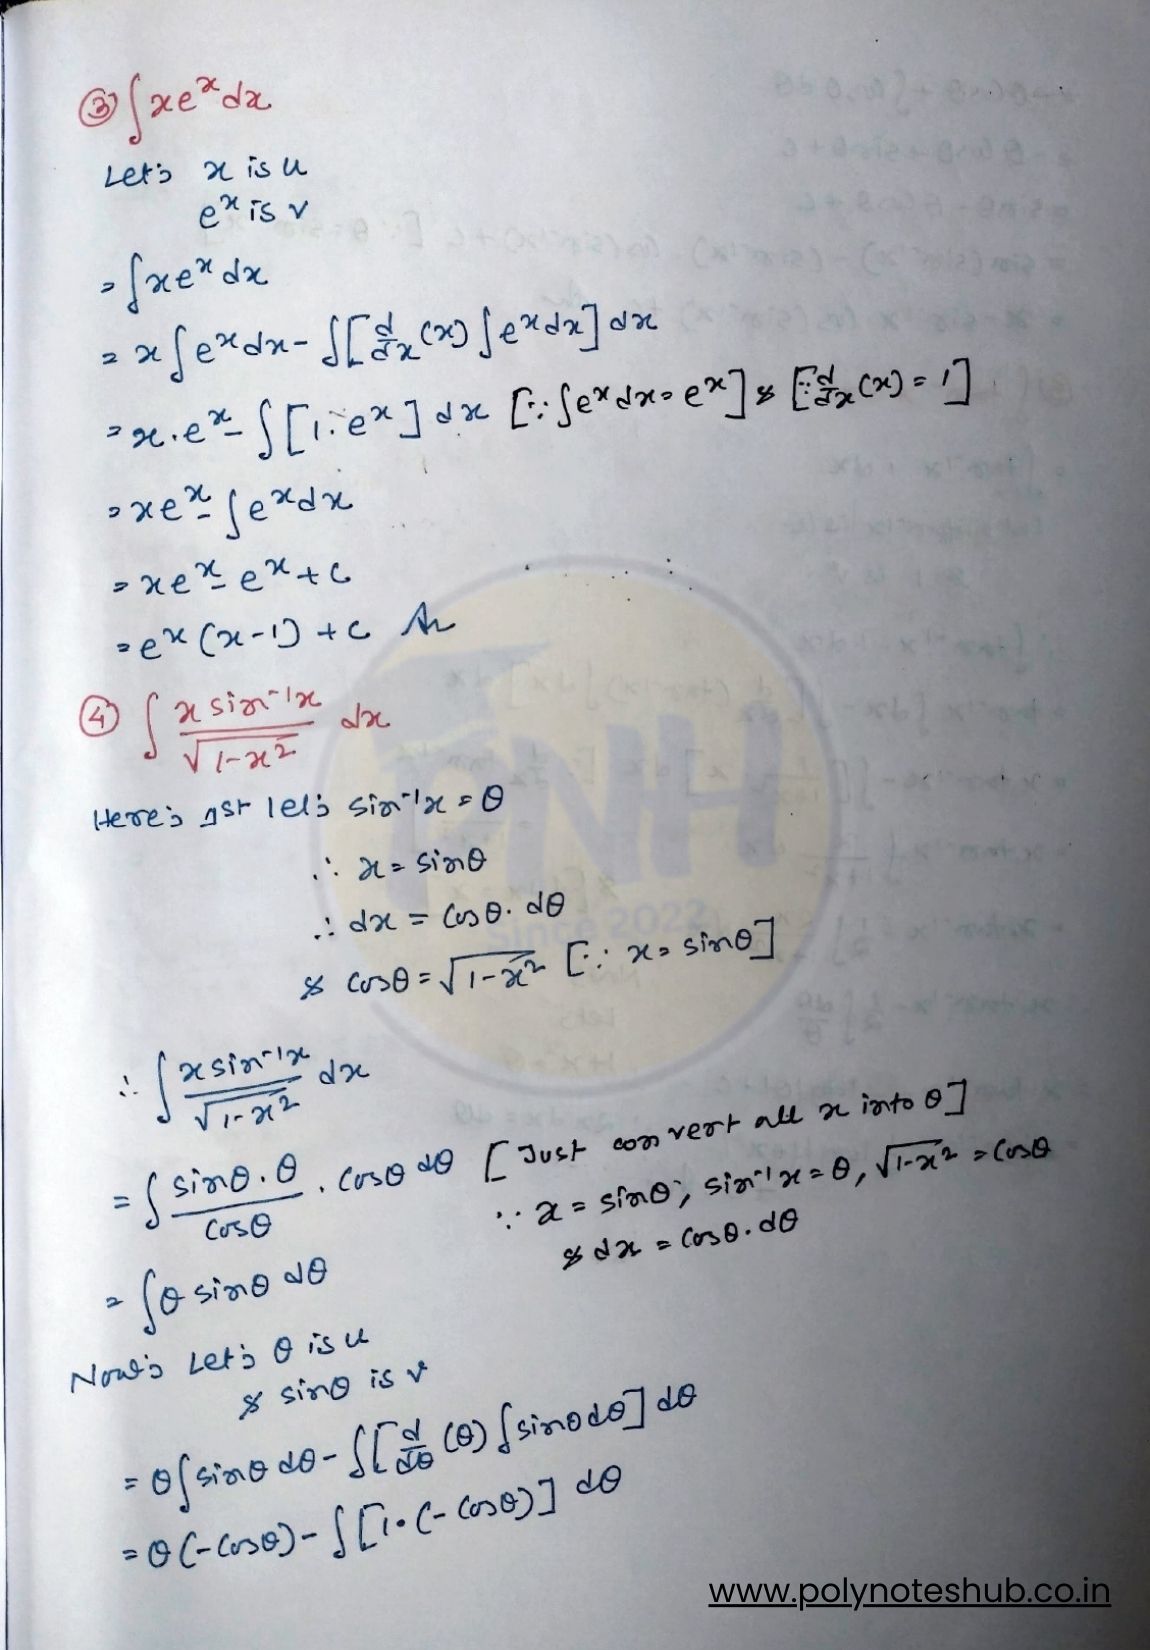 ③ ∫xeˣdx
Let's x is u
eˣ is v
= ∫xeˣ dx
= x∫eˣdx - ∫[d/dx(x)∫eˣdx]dx
= x.eˣ - ∫[1.eˣ]dx [∵∫eˣdx = eˣ] & [∵d/dx(x) = 1]
= xeˣ - ∫eˣdx
= xeˣ - eˣ + c
= eˣ(x-1) + c Ans
④ ∫ x sin⁻¹x / √1-x² dx
Here's 1st let's sin⁻¹x = θ
∴ x = sinθ
∴ dx = cosθ. dθ
& cosθ = √1-x² [∵ x = sinθ]
∴ ∫ x sin⁻¹x / √1-x² dx
= ∫ sinθ.θ / cosθ . cosθ dθ [Just convert all x into θ]
∵ x = sinθ, sin⁻¹x = θ, √1-x² = cosθ
& dx = cosθ.dθ
= ∫θ sinθ dθ
Now's Let's θ is u
& sinθ is v
= θ∫sinθ dθ - ∫[d/dθ(θ)∫sinθdθ]dθ
= θ(-cosθ) - ∫[1.(-cosθ)] dθ
PNH
Since 2022
www.polynoteshub.co.in